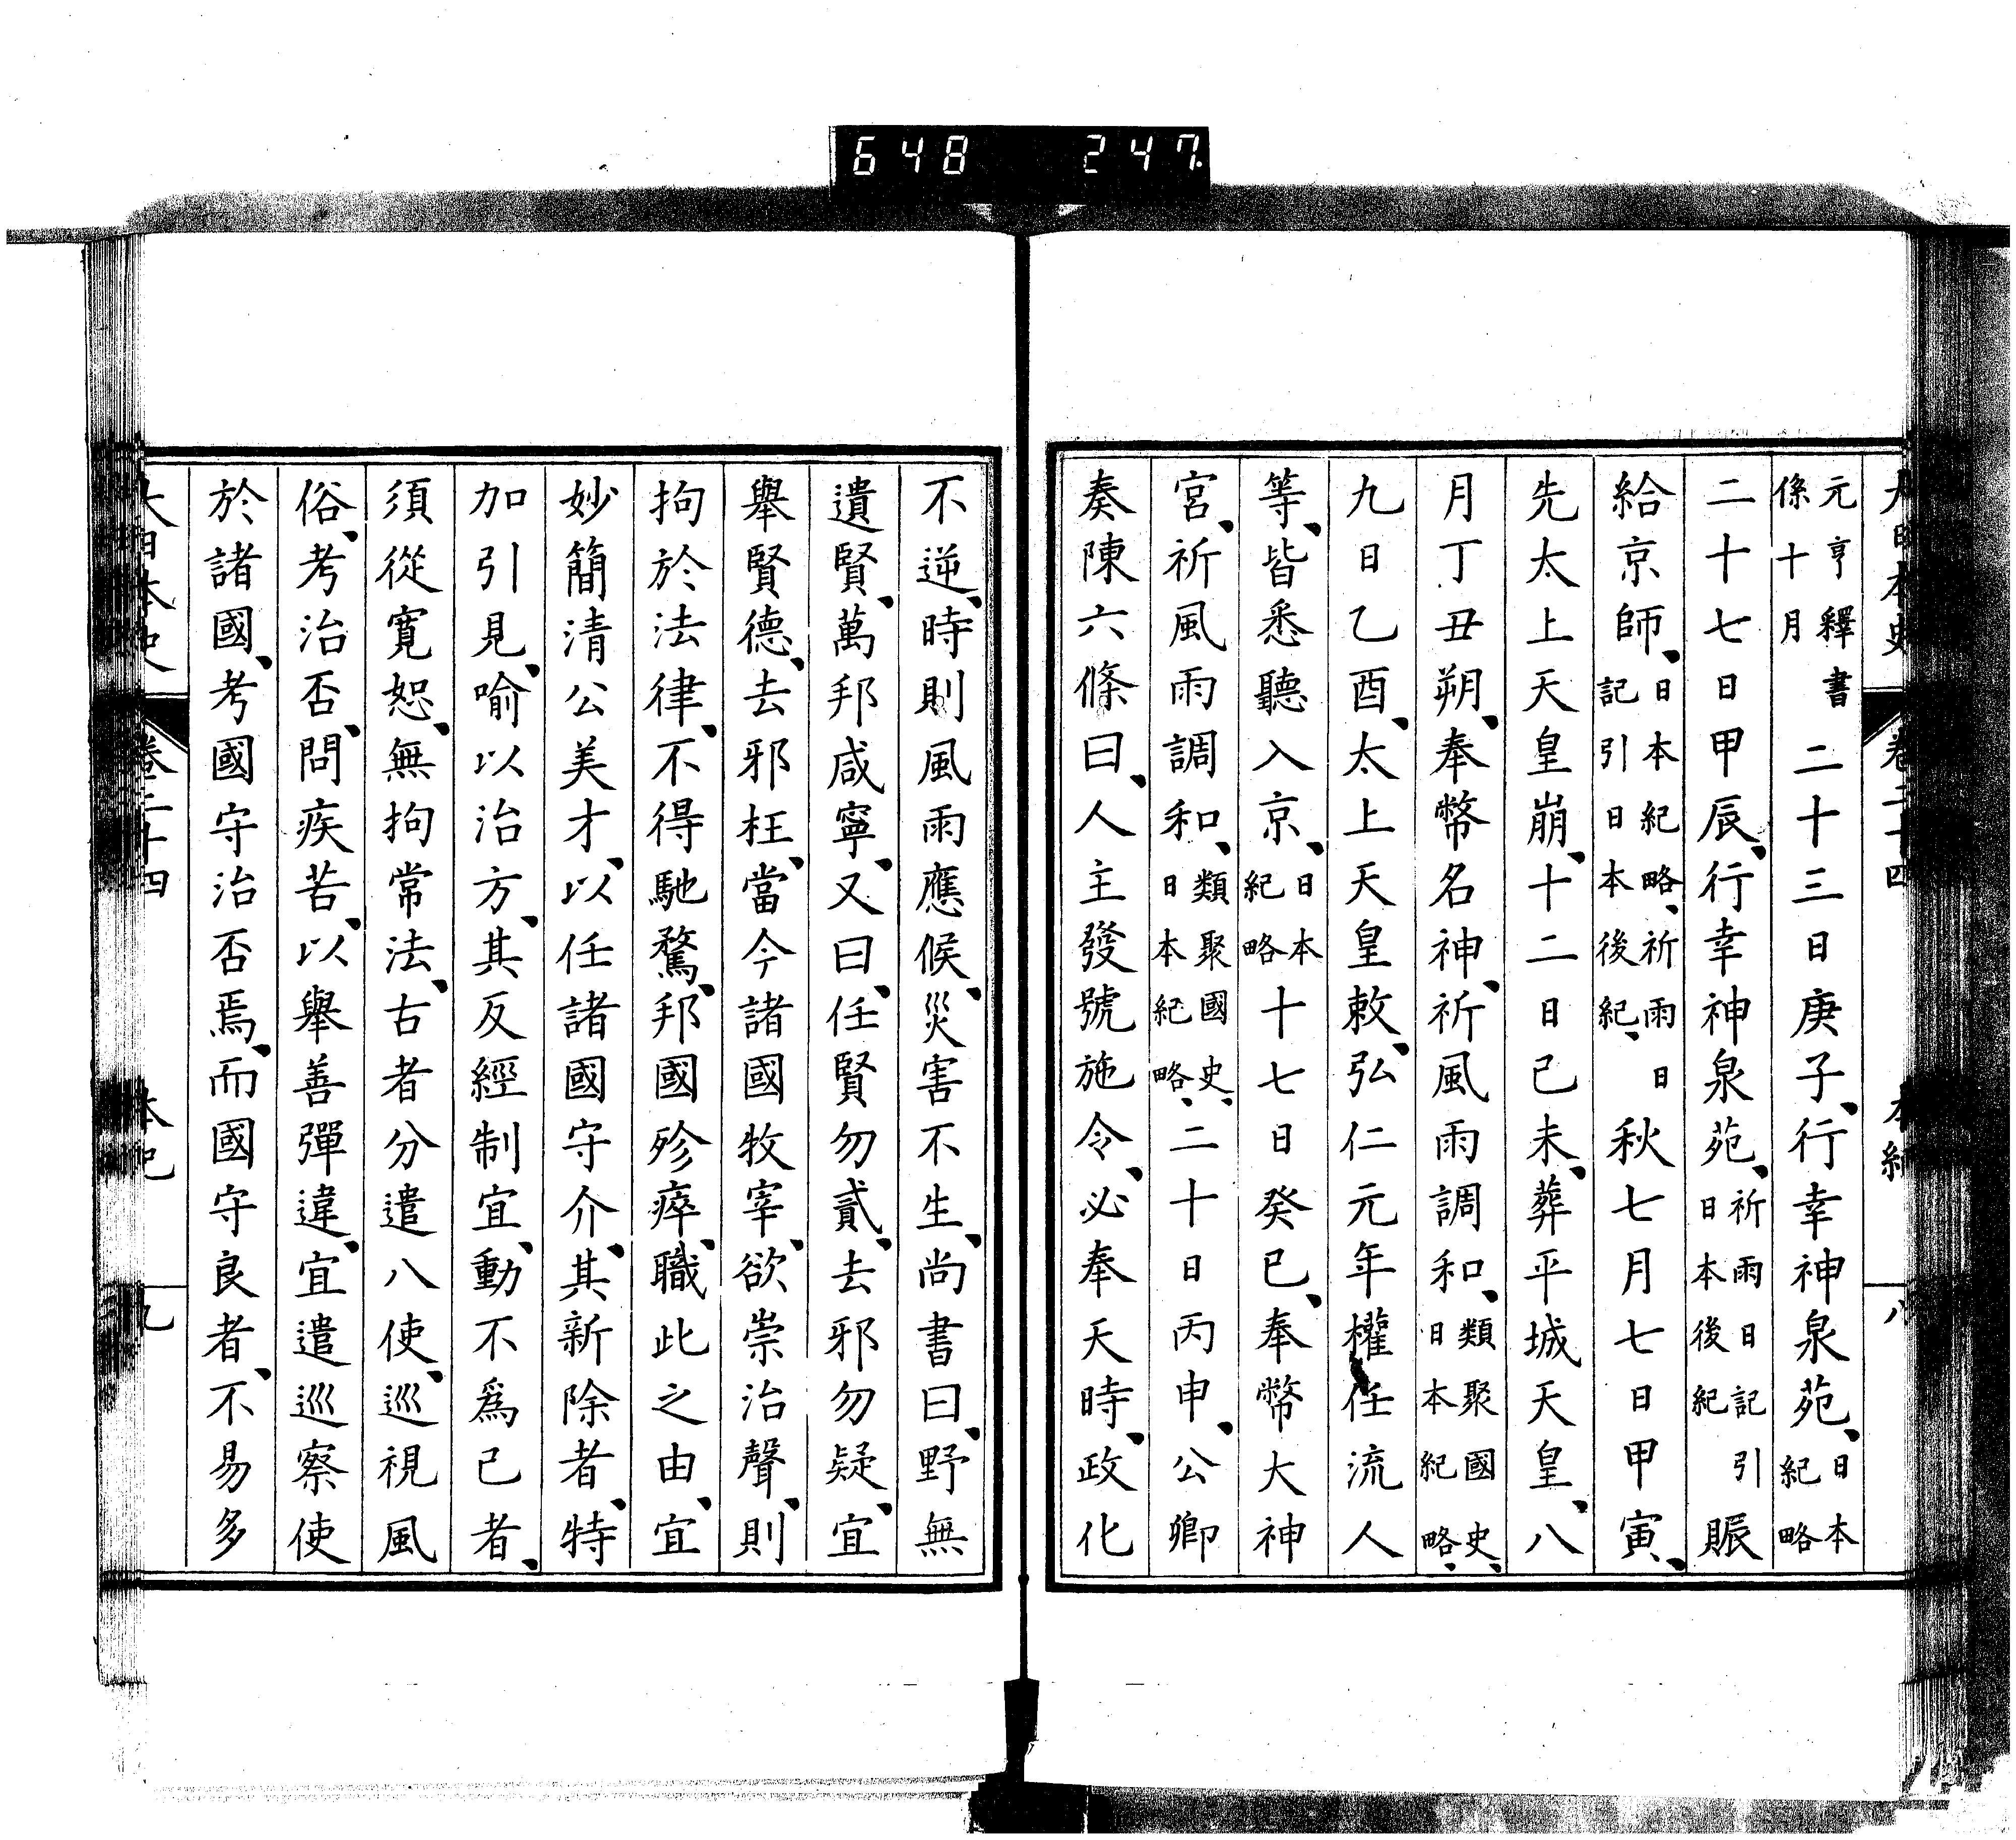 648 247.
大日本史 卷二十四 本紀 八
元亨釋書係十月 二十三日庚子、行幸神泉苑、日本紀略
二十七日甲辰、行幸神泉苑、祈雨日記引日本後紀 賑
給京師、日本紀略、祈雨日記引日本後紀、 秋七月七日甲寅、
先太上天皇崩、十二日己未、葬平城天皇、八
月丁丑朔、奉幣名神、祈風雨調和、類聚國史、日本紀略、
九日乙酉、太上天皇敕、弘仁元年權任流人
等、皆悉聽入京、日本紀略 十七日癸巳、奉幣大神
宮、祈風雨調和、類聚國史、日本紀略、二十日丙申、公卿
奏陳六條曰、人主發號施令、必奉天時、政化
不逆、時則風雨應候、災害不生、尚書曰、野無
遺賢、萬邦咸寧、又曰、任賢勿貳、去邪勿疑、宜
舉賢德、去邪枉、當今諸國牧宰、欲崇治聲、則
拘於法律、不得馳騖、邦國殄瘁、職此之由、宜
妙簡清公美才、以任諸國守介、其新除者、特
加引見、喻以治方、其反經制宜、動不爲己者、
須從寬恕、無拘常法、古者分遣八使、巡視風
俗、考治否、問疾苦、以舉善彈違、宜遣巡察使
於諸國、考國守治否焉、而國守良者、不易多
大日本史 卷二十四 本紀 九